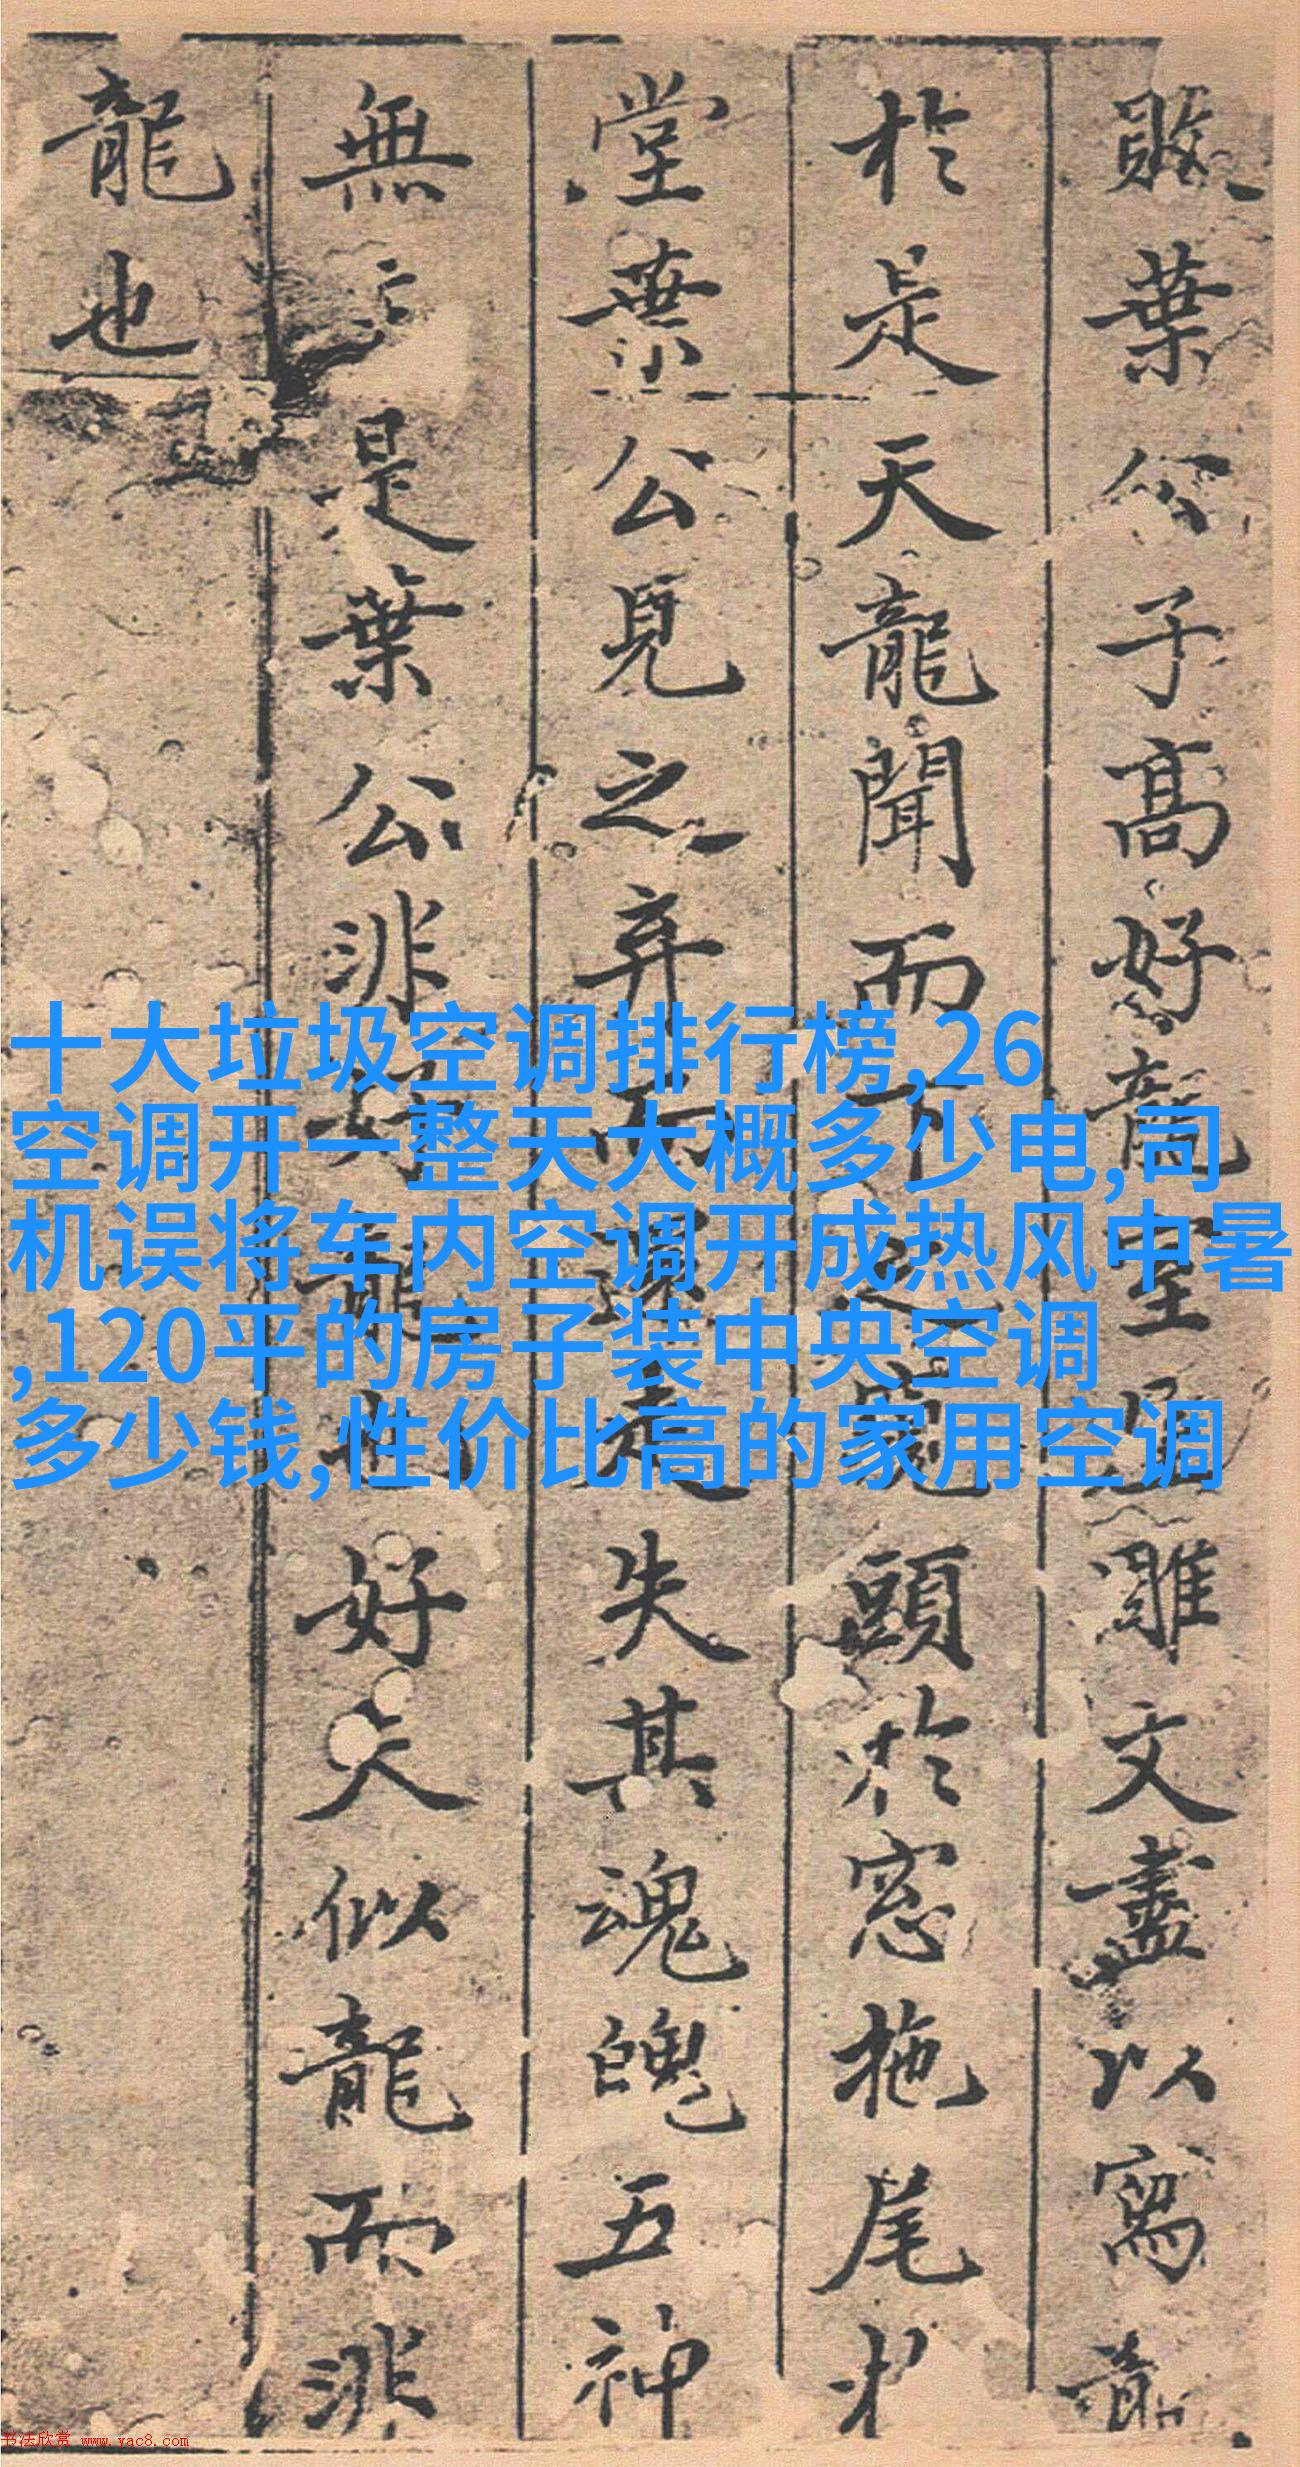 敗葉公子高好龍室屋雕文盡以寫龍
於是天龍聞而下之窺頭於窓拖尾於
堂葉公見之弃而還走失其魂魄五神
無主是葉公非好龍也好夫似龍而非
龍也
十大垃圾空调排行榜,26
空调开一整天大概多少电,司
机误将车内空调开成热风中暑
,120平的房子装中央空调
多少钱,性价比高的家用空调
书法欣赏 www.yac8.com